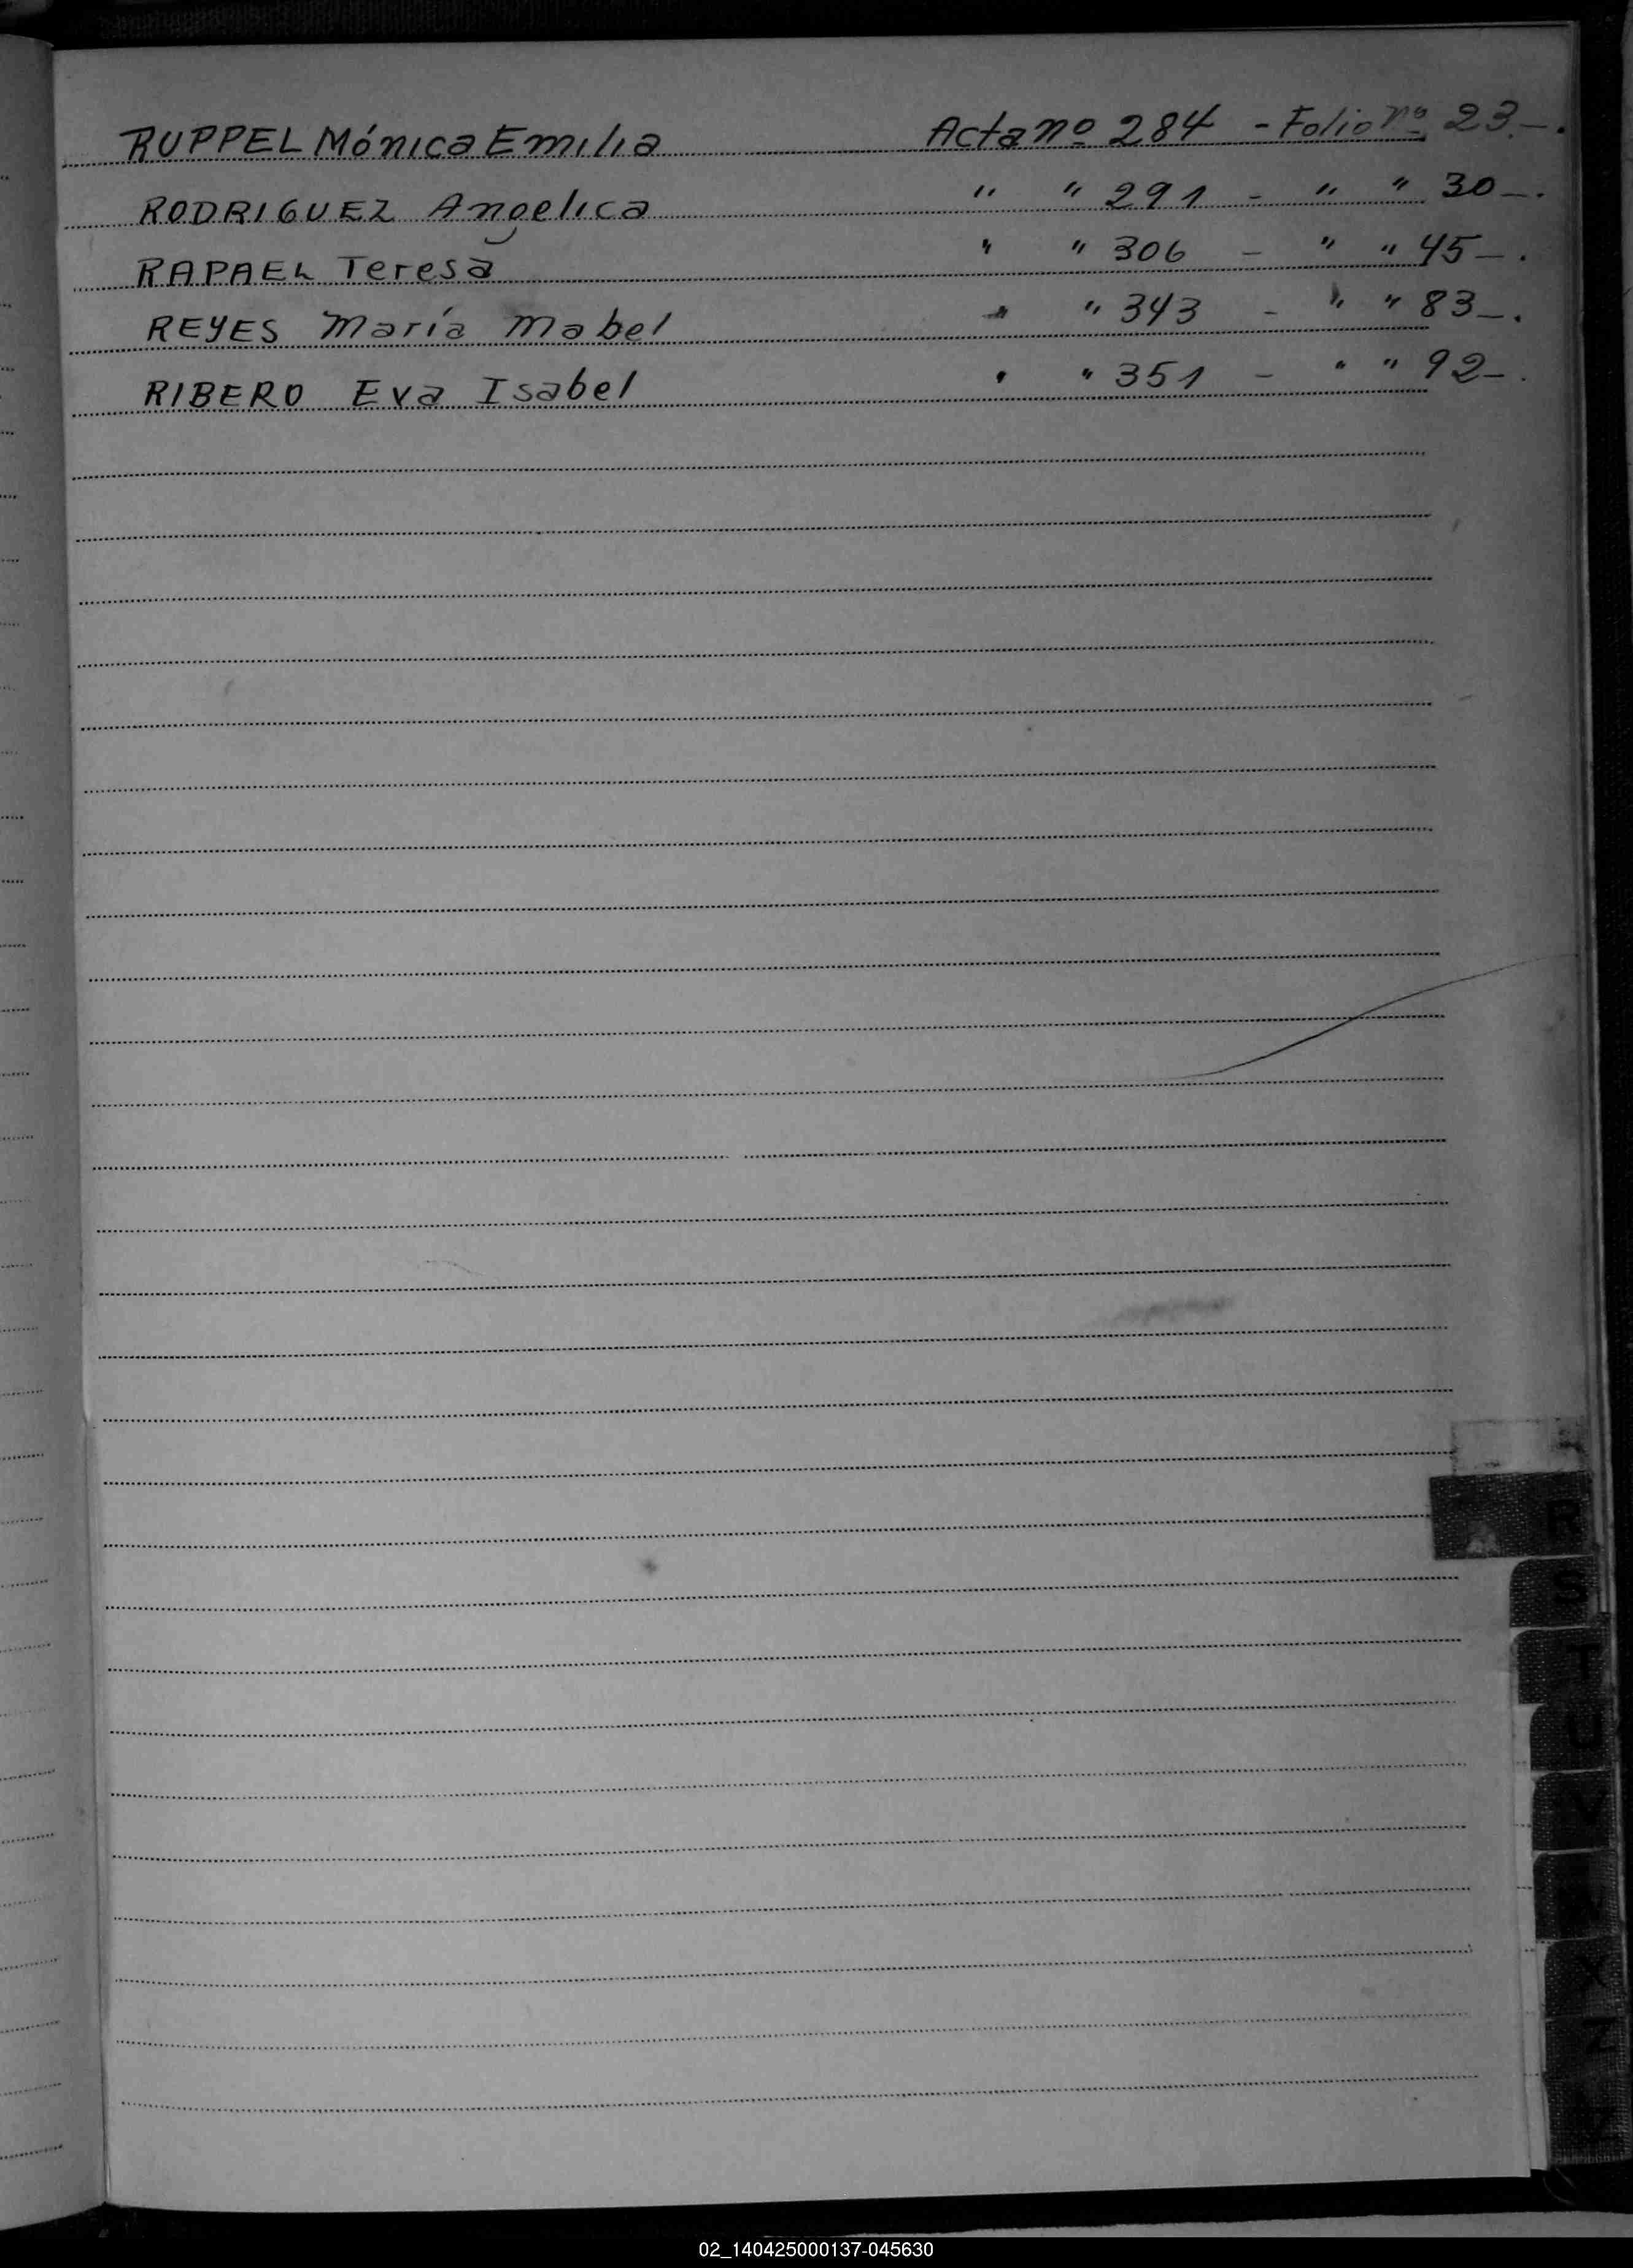 RUPPEL Mónica Emilia Acta nº 284 - Folio nº 23.-.
RODRIGUEZ Angelica " " 291 - " " 30-.
RAPAEL Teresa " " 306 - " " 45-.
REYES María Mabel " " 343 - " " 83-.
RIBERO Eva Isabel " " 351 - " " 92-.
R
S
T
U
V
X
Z
02_140425000137-045630